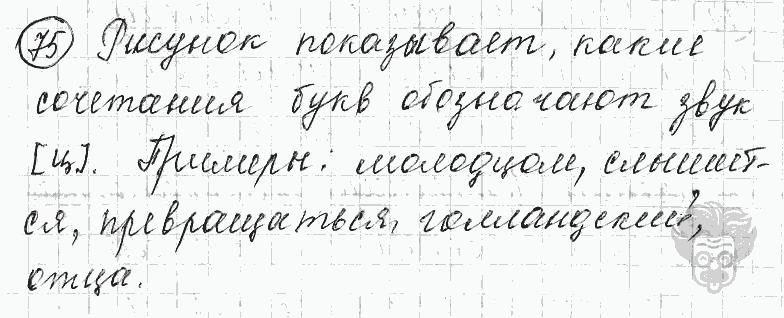 75 Рисунок показывает, какие
сочетания букв обозначают звук
[ц]. Примеры: молодцом, слышит-
ся, превращаться, голландский,
отца.